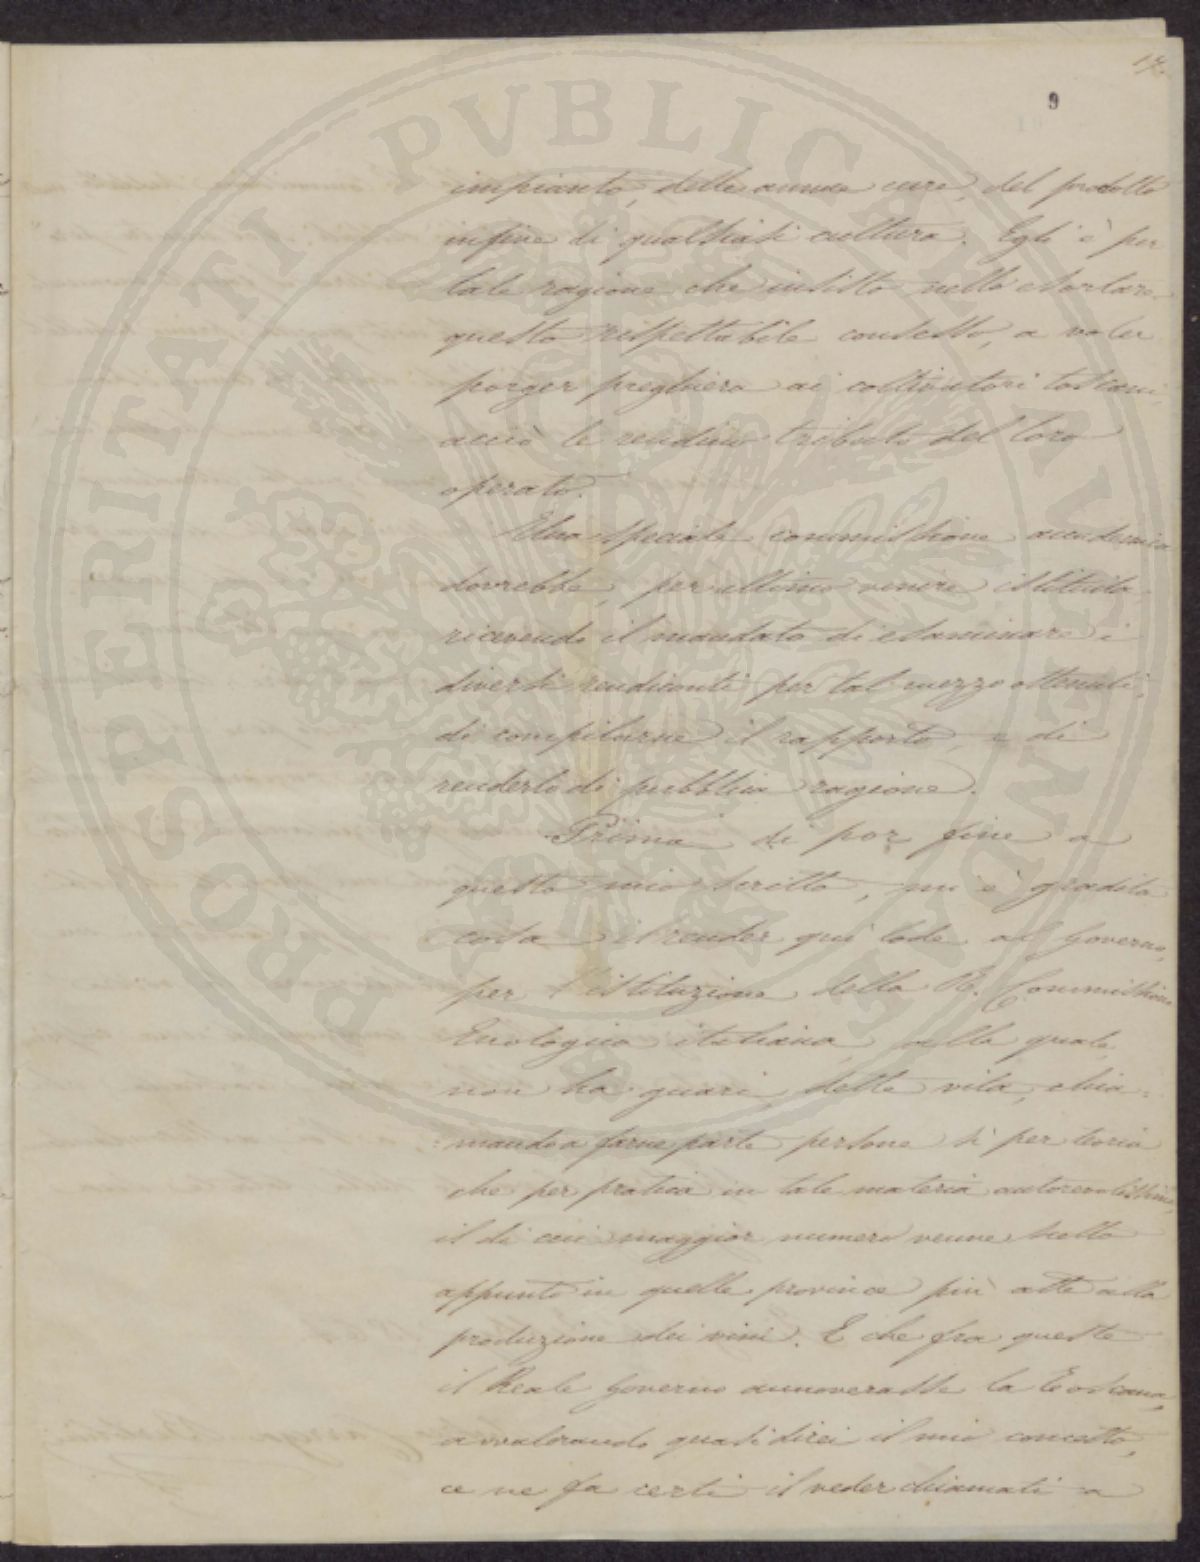 17.
9
impianto, delle annue cure, del prodotto
infine di qualsiasi cultura. Egli è per
tale ragione che insisto nello esortare
questo rispettabile consesso, a voler
porger preghiera ai coltivatori toscani,
acciò le rendino tributo del loro
operato.
Una speciale commissione accademica
dovrebbe, per ultimo venire istituita
ricevendo il mandato di esaminare i
diversi rendiconti per tal mezzo ottenuti,
di compilarne il rapporto, e di
renderlo di pubblica ragione.
Prima di por fine a
questo mio scritto, mi è gradita
cosa il render qui lode al Governo,
per l'istituzione della R. Commissione
Enologica italiana, alla quale,
non ha guari, dette vita, chia=
=mando a farne parte persone sì per teoria
che per pratica in tale materia autorevolissime,
il di cui maggior numero venne scelto
appunto in quelle province più atte alla
produzione dei vini. E che fra queste
il Reale Governo annoverasse la Toscana,
avvalorando quasi direi il mio concetto,
ce ne fa certi il veder chiamati a
PROSPERITATI PVBLICAE AVGENDAE